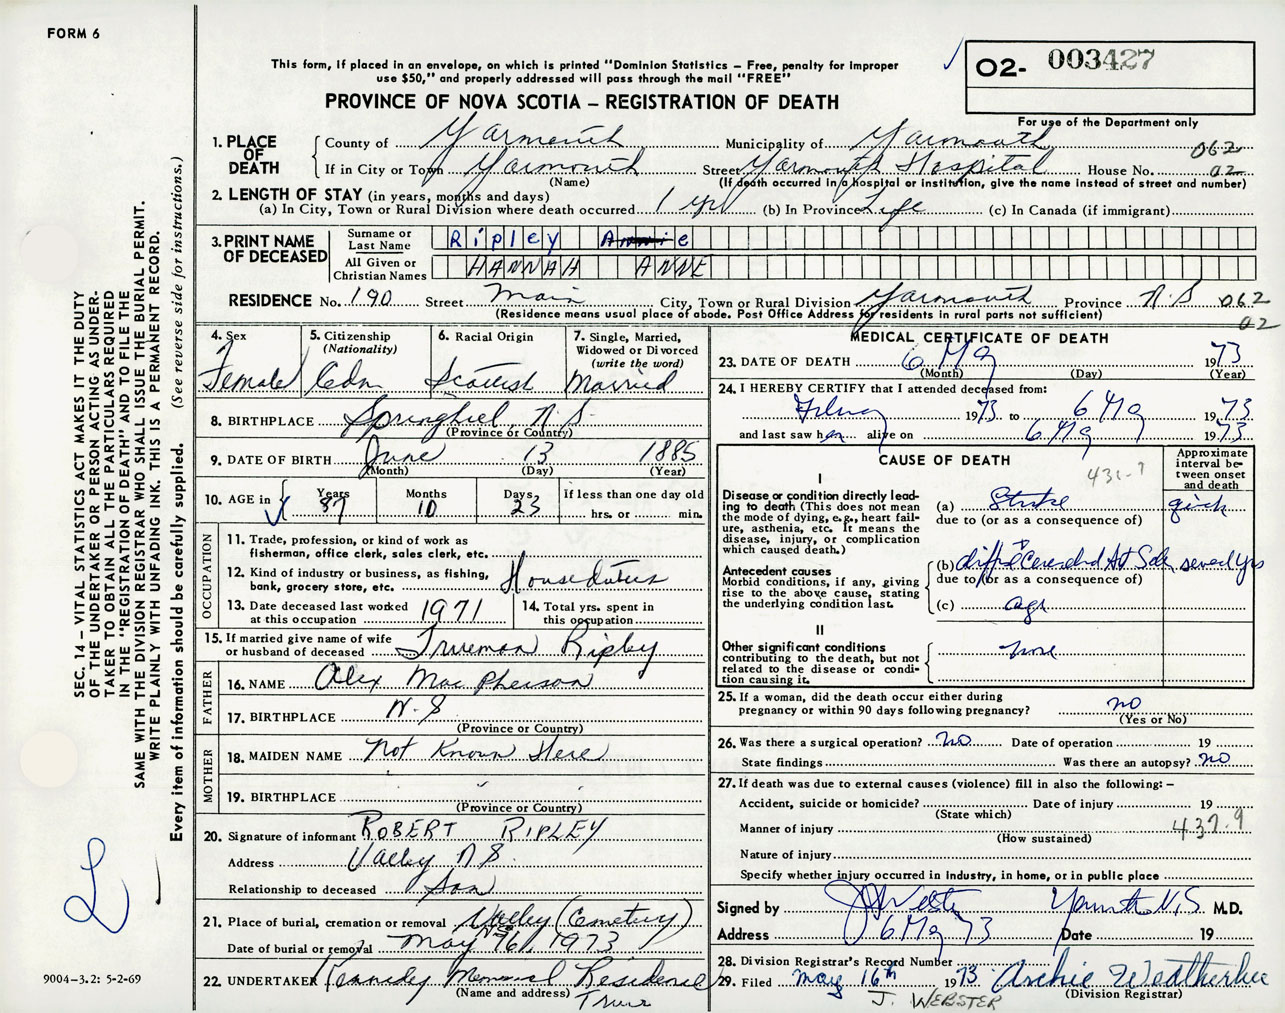 FORM 6
O2- 003427
This form, if placed in an envelope, on which is printed "Dominion Statistics – Free, penalty for improper
use $50," and properly addressed will pass through the mail "FREE"
PROVINCE OF NOVA SCOTIA – REGISTRATION OF DEATH
For use of the Department only
1. PLACE OF DEATH
County of Yarmouth Municipality of Yarmouth 062
If in City or Town Yarmouth Street Yarmouth Hospital House No. 02
(Name) (If death occurred in a hospital or institution, give the name instead of street and number)
2. LENGTH OF STAY (in years, months and days)
(a) In City, Town or Rural Division where death occurred 1 yr (b) In Province Life (c) In Canada (if immigrant)
3. PRINT NAME OF DECEASED
Surname or Last Name Ripley Annie
All Given or Christian Names HANNAH ANNE
RESIDENCE No. 190 Street Main City, Town or Rural Division Yarmouth Province N.S 062
(Residence means usual place of abode. Post Office Address for residents in rural parts not sufficient) 02
4. Sex Female
5. Citizenship (Nationality) Cdn
6. Racial Origin Scottish
7. Single, Married, Widowed or Divorced (write the word) Married
8. BIRTHPLACE Springhill N.S.
(Province or Country)
9. DATE OF BIRTH June 13 1885
(Month) (Day) (Year)
10. AGE in Years 87 Months 10 Days 23 If less than one day old
hrs. or min.
OCCUPATION
11. Trade, profession, or kind of work as
fisherman, office clerk, sales clerk, etc.
12. Kind of industry or business, as fishing,
bank, grocery store, etc. House duties
13. Date deceased last worked
at this occupation 1971
14. Total yrs. spent in
this occupation
15. If married give name of wife
or husband of deceased Trueman Ripley
FATHER
16. NAME Alex MacPherson
17. BIRTHPLACE N.S
(Province or Country)
MOTHER
18. MAIDEN NAME Not Known Here
19. BIRTHPLACE " "
(Province or Country)
20. Signature of informant ROBERT RIPLEY
Address Valley N.S.
Relationship to deceased Son
21. Place of burial, cremation or removal Valley (Cemetery)
N.S.
Date of burial or removal May 1973
22. UNDERTAKER Kennedy Memorial Residence
(Name and address) Truro
MEDICAL CERTIFICATE OF DEATH
23. DATE OF DEATH 6 My 1973
(Month) (Day) (Year)
24. I HEREBY CERTIFY that I attended deceased from:
1973 to 6 My 1973
and last saw her alive on 6 My 1973
CAUSE OF DEATH
Approximate interval between onset and death
I
Disease or condition directly lead-
ing to death (This does not mean
the mode of dying, e.g., heart fail-
ure, asthenia, etc. It means the
disease, injury, or complication
which caused death.)
(a) Stroke
due to (or as a consequence of)
Antecedent causes
Morbid conditions, if any, giving
rise to the above cause, stating
the underlying condition last.
(b) Cerebral Art several yrs
due to (or as a consequence of)
(c) age
II
Other significant conditions
contributing to the death, but not
related to the disease or condi-
tion causing it.
none
25. If a woman, did the death occur either during
pregnancy or within 90 days following pregnancy? no
(Yes or No)
26. Was there a surgical operation? no Date of operation 19
State findings Was there an autopsy? no
27. If death was due to external causes (violence) fill in also the following: –
Accident, suicide or homicide? Date of injury 19
(State which) 437.9
Manner of injury
(How sustained)
Nature of injury
Specify whether injury occurred in industry, in home, or in public place
Signed by Yarmouth N.S. M.D.
Address 6 My 73 Date 19
28. Division Registrar's Record Number
29. Filed May 16th 1973 Archie Weatherbee
(Division Registrar)
J. WEBSTER
SEC. 14 – VITAL STATISTICS ACT MAKES IT THE DUTY
OF THE UNDERTAKER OR PERSON ACTING AS UNDER-
TAKER TO OBTAIN ALL THE PARTICULARS REQUIRED
IN THE "REGISTRATION OF DEATH" AND TO FILE THE
SAME WITH THE DIVISION REGISTRAR WHO SHALL ISSUE THE BURIAL PERMIT.
WRITE PLAINLY WITH UNFADING INK. THIS IS A PERMANENT RECORD.
Every item of information should be carefully supplied. (See reverse side for instructions.)
9004–3.2: 5-2-69